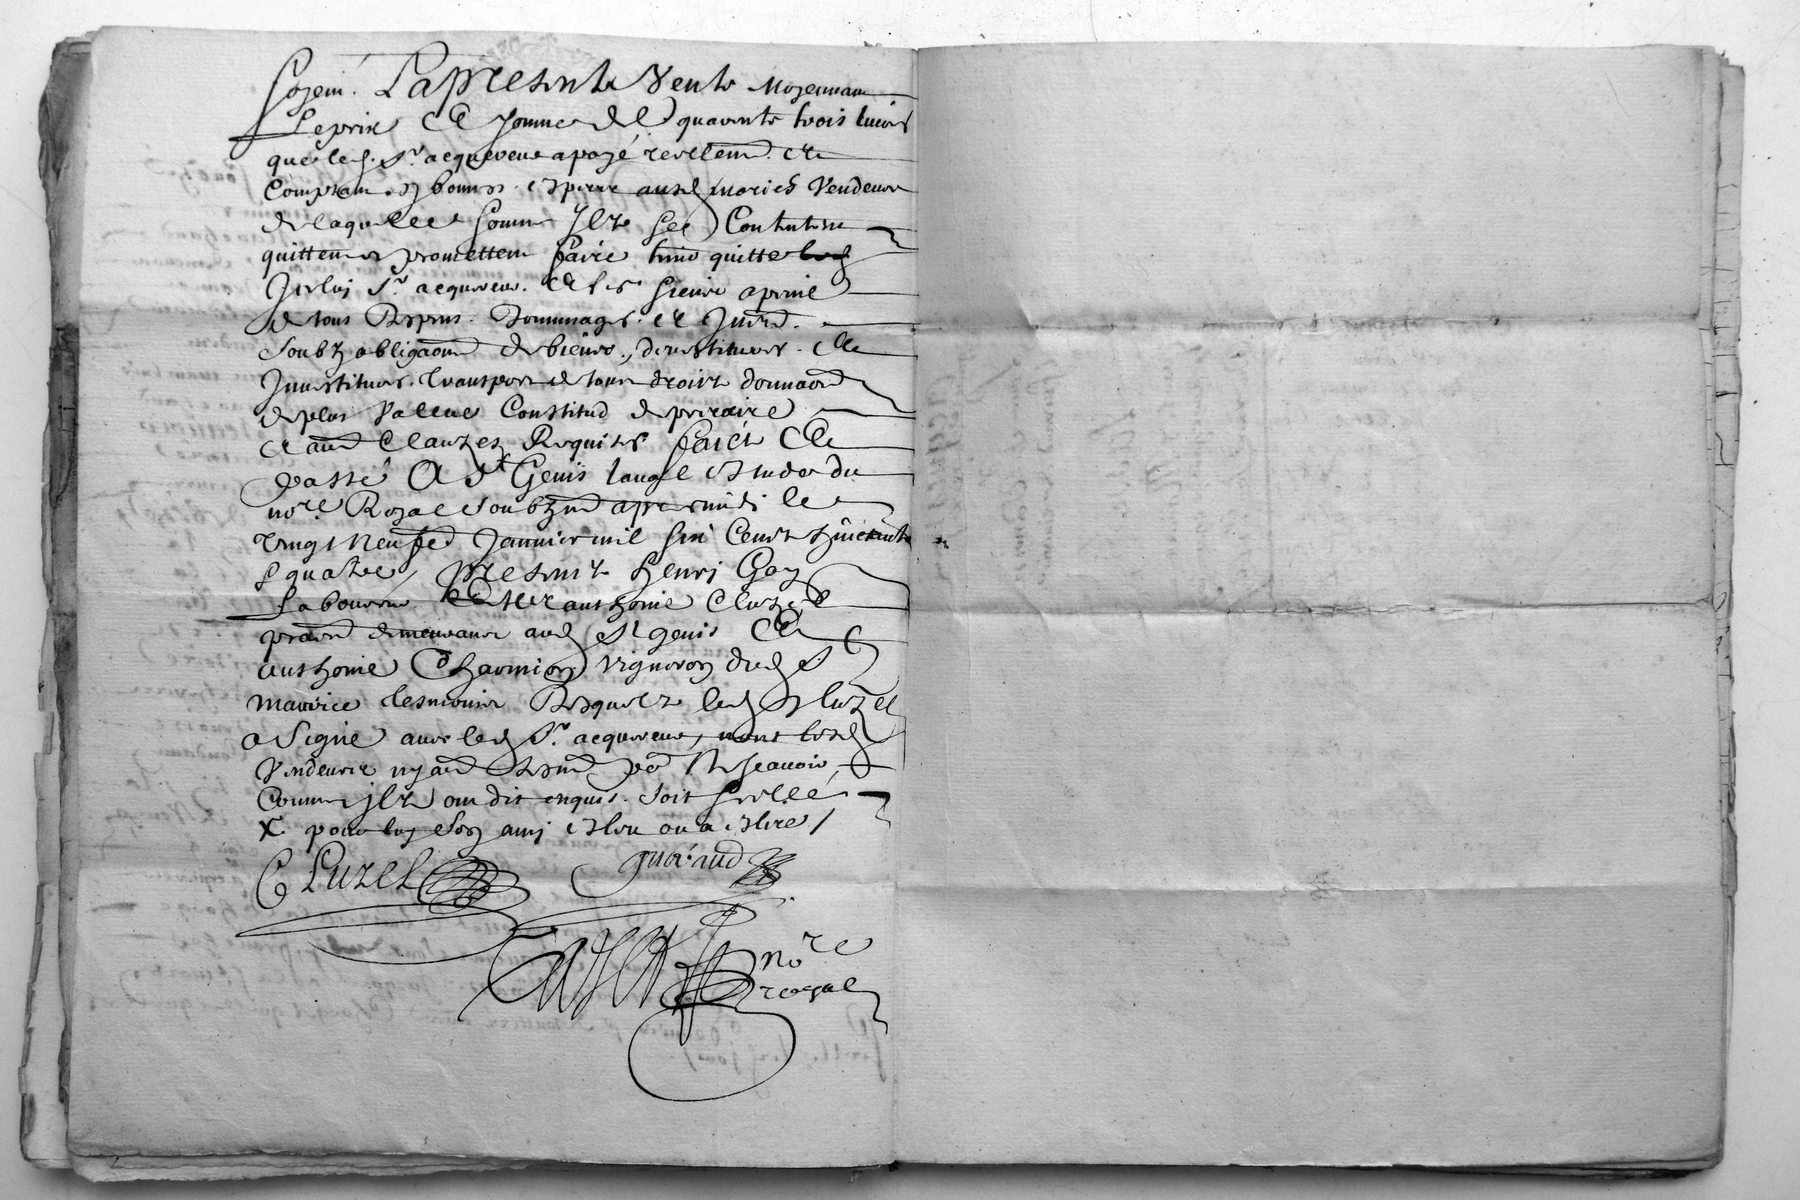 La presente Vente Moyennant
Le prix & somme de quarente trois livres
que led. Sr. acquereur a payé reellemt. &
Comptant en bonnes espece ausd mariés Vendeurs
de laquelle somme ilz se Contentent
quittent & promettent faire tenir quitte
Iceluy Sr. acquereur & les siens a peine
de tous despens Dommages & Interd.
Soubz obligaon de biens, devestitures &
Investitures Transport de tous droitz donnaon
de plus Valleue Constitud de precaire
& aud Clauzes Requises faict &
passé A St Genis laval estude du
nore. Royal Soubzné apres midi le
vingt Neufe Janvier mil six Centz huictante
quatre, presentz henri Gay
Laboureur & Mer anthoine Cluzel
praon demeurant aud St genis &
anthoine Charmion vigneron dud St
Maurice tesmoins Requis led Cluzel
a Signé avec led Sr. acquereur, non lesd
Vendeurs ny aud tesmd po Ne scavoir
Comme ilz ont dit enquis. soit scellé
X pour luy son amy eslu ou a eslire /
CLuzel guiraud
nore
royal